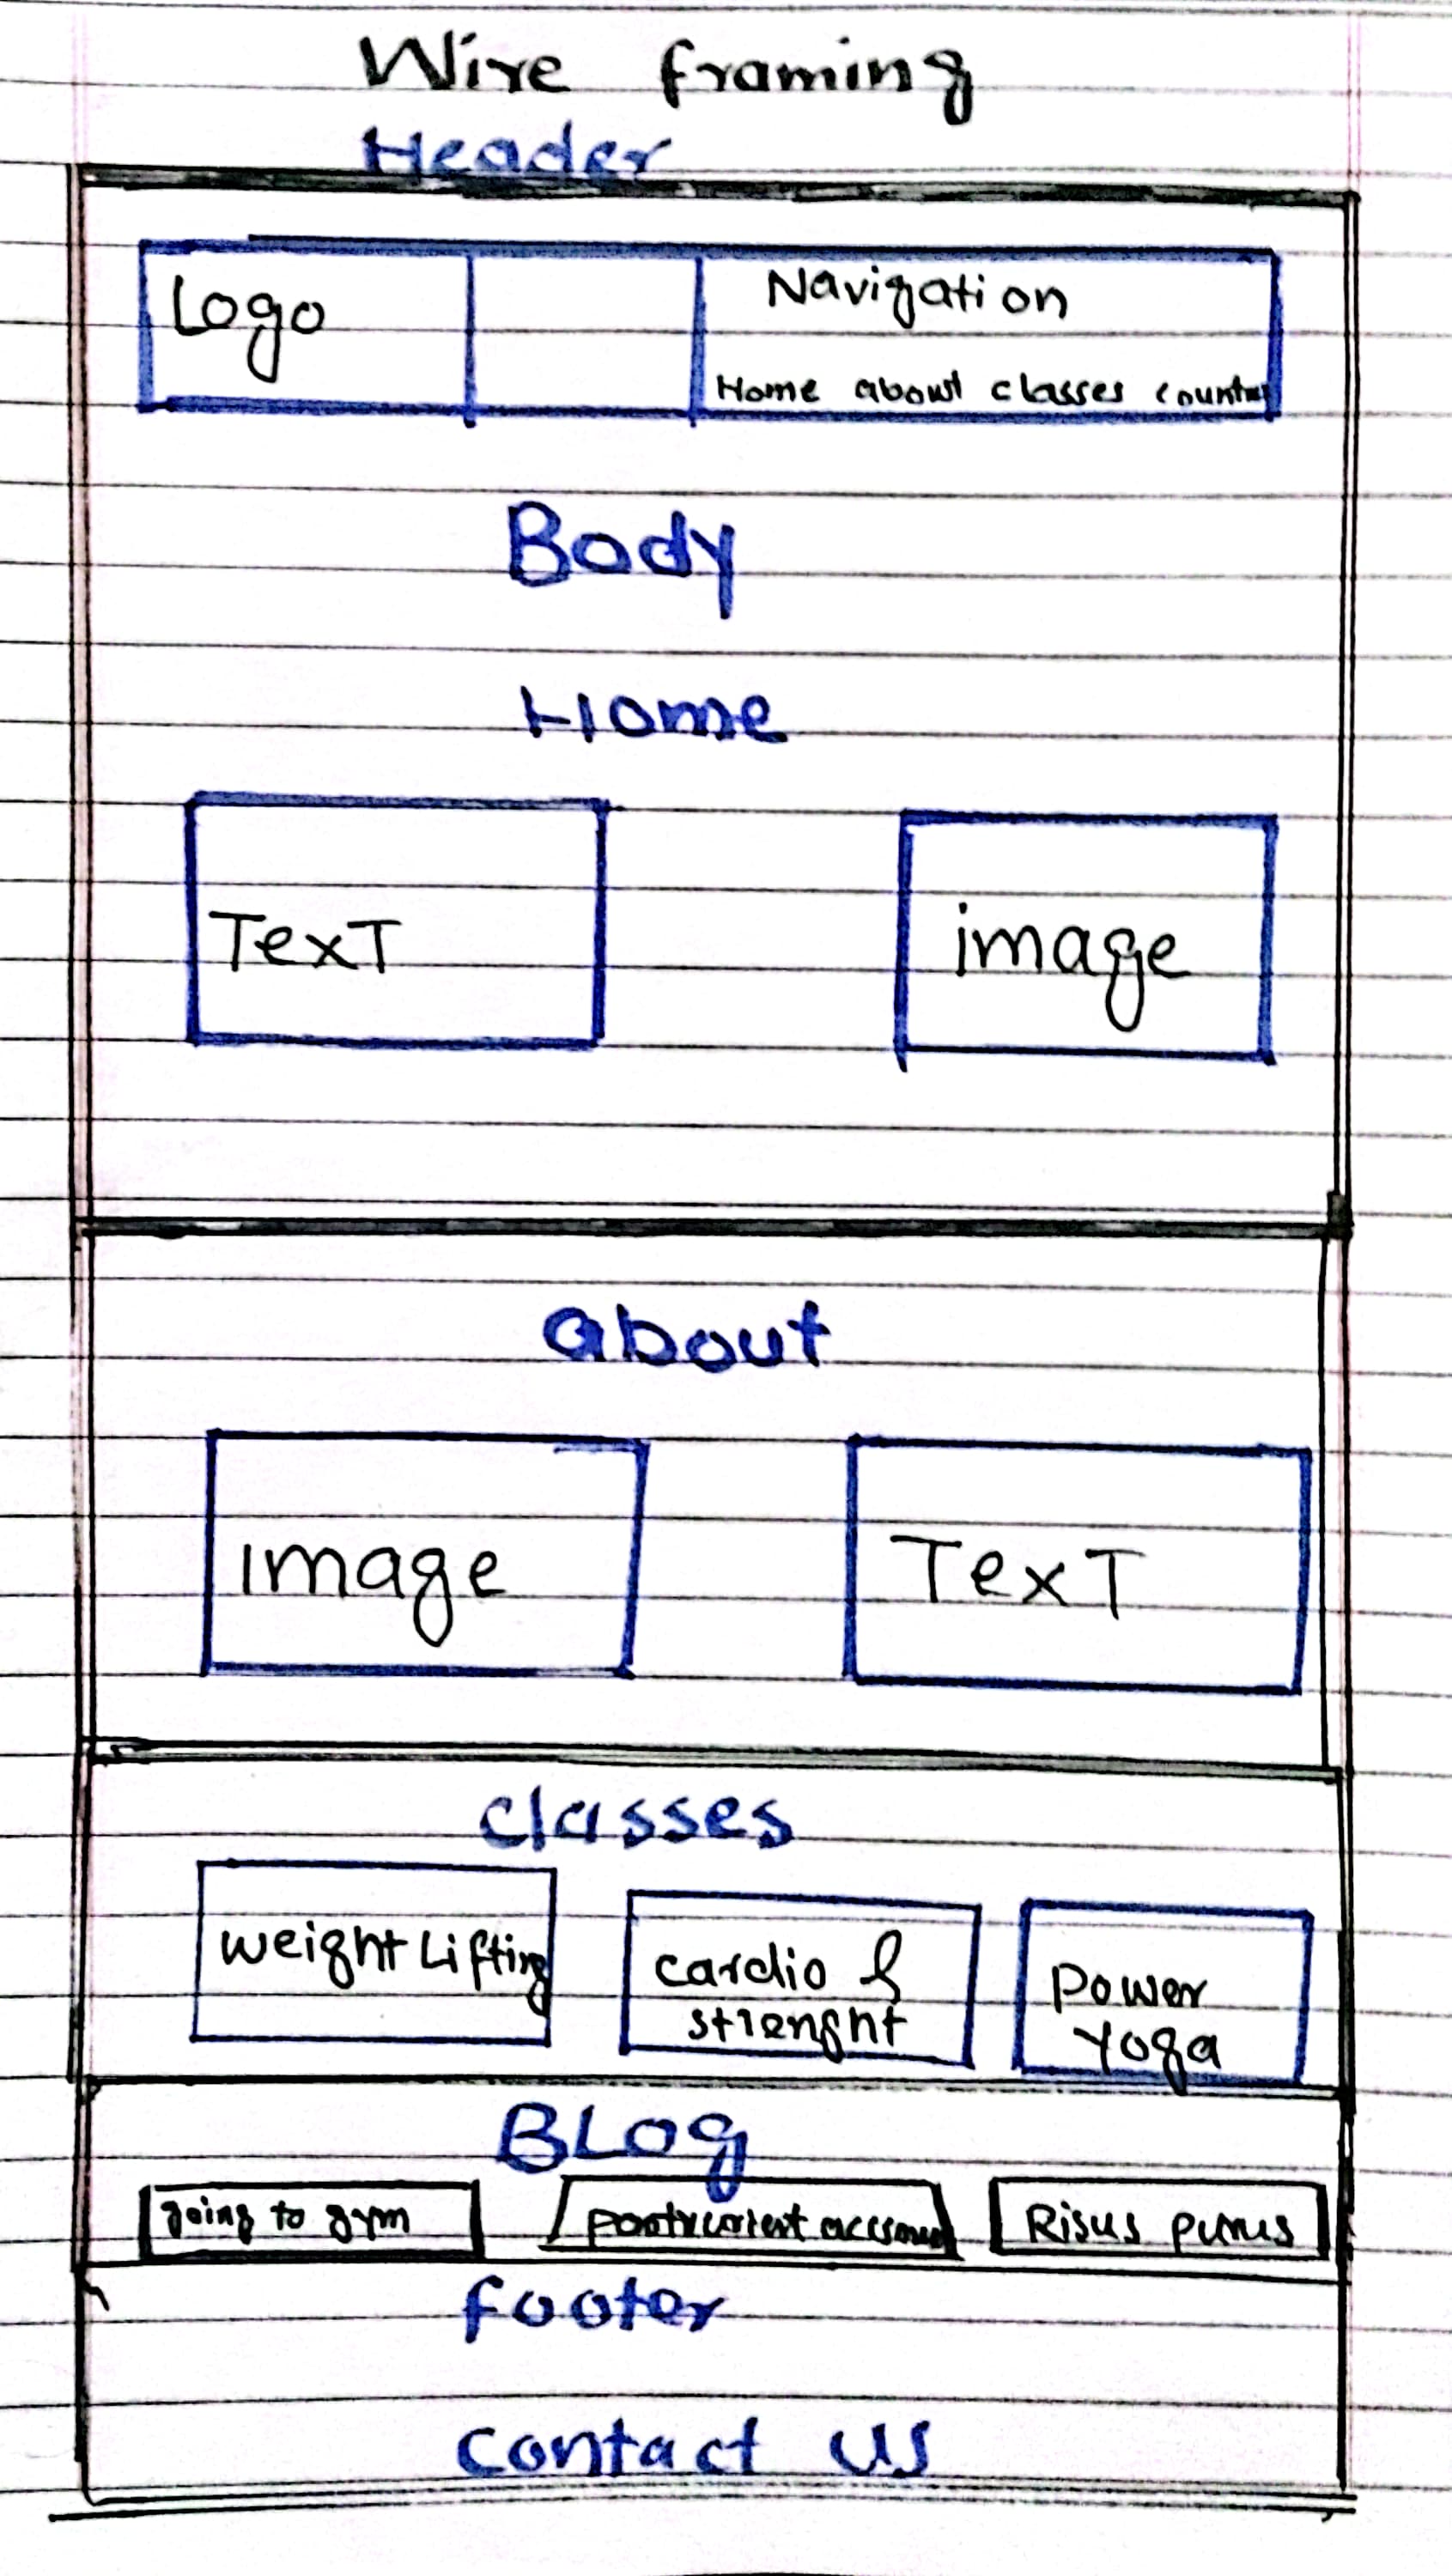 Wire framing
Header
Logo
Navigation
Home about classes
Body
Home
TexT
image
about
image
TexT
classes
weight Lifting
cardio &
strenght
power
yoga
BLog
going to gym
Risus purus
footer
contact us